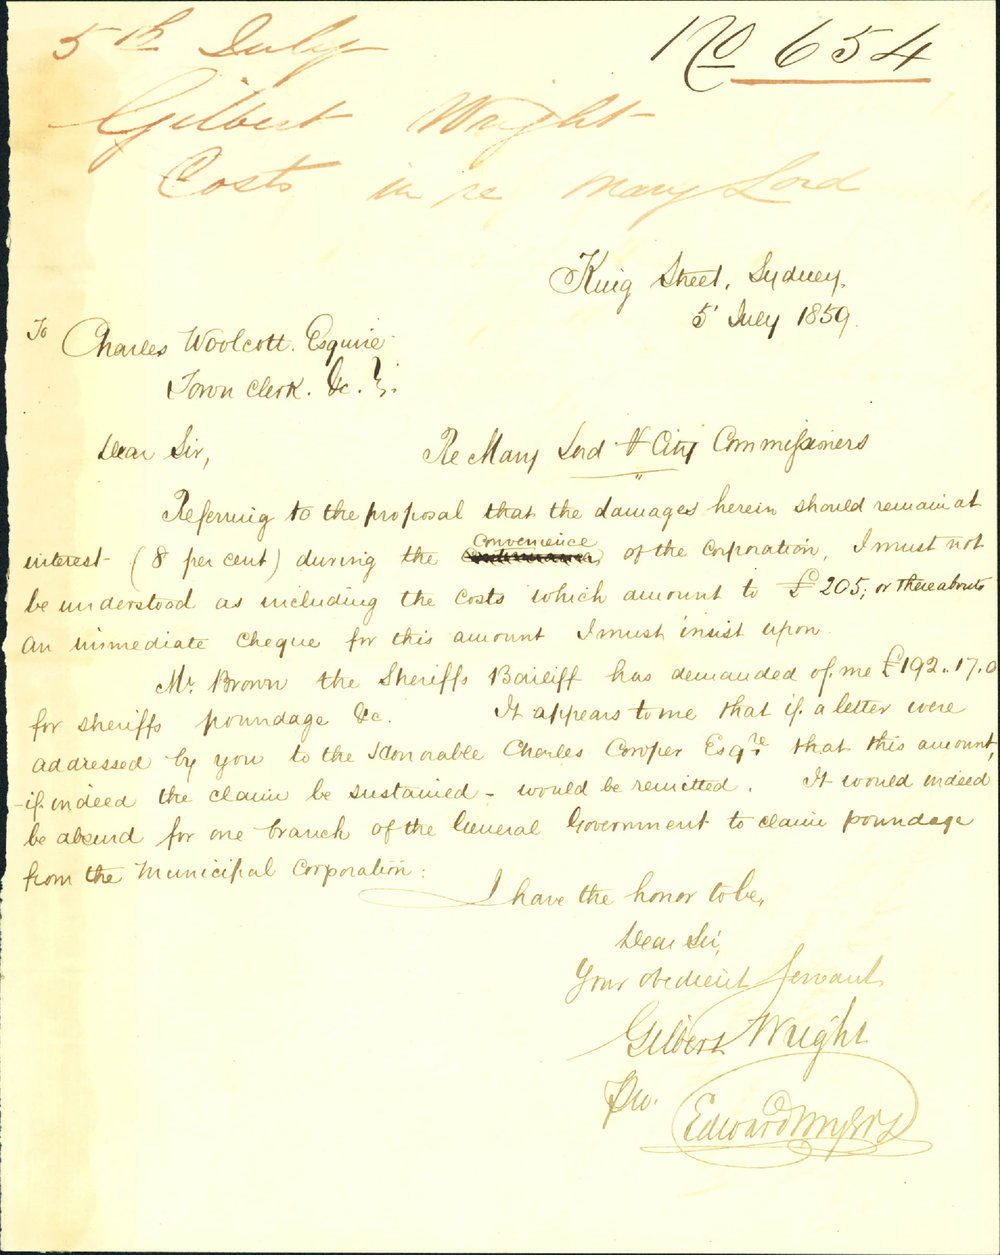 5th July
No 654
Gilbert Wright
Costs in re Mary Lord
King Street, Sydney.
5 July 1859.
To
Charles Woolcott. Esquire
Town Clerk. &c. &.
Dear Sir,
Re Mary Lord v City Commissioners
Referring to the proposal that the damages herein should remain at
convenience
interest (8 per cent) during the of the corporation, I must not
be understood as including the costs which amount to £205; or thereabouts
an immediate cheque for this amount I must insist upon.
Mr. Brown the Sheriffs Bailiff has demanded of me £192..17.0
for sheriffs poundage &c. It appears to me that if a letter were
addressed by you to the Honorable Charles Cowper Esqre that this amount,
-if indeed the claim be sustained - would be remitted. It would indeed
be absurd for one branch of the General Government to claim poundage
from the Municipal Corporation:
I have the honor to be,
Dear Sir,
Your obedient servant
Gilbert Wright
Edward Myers